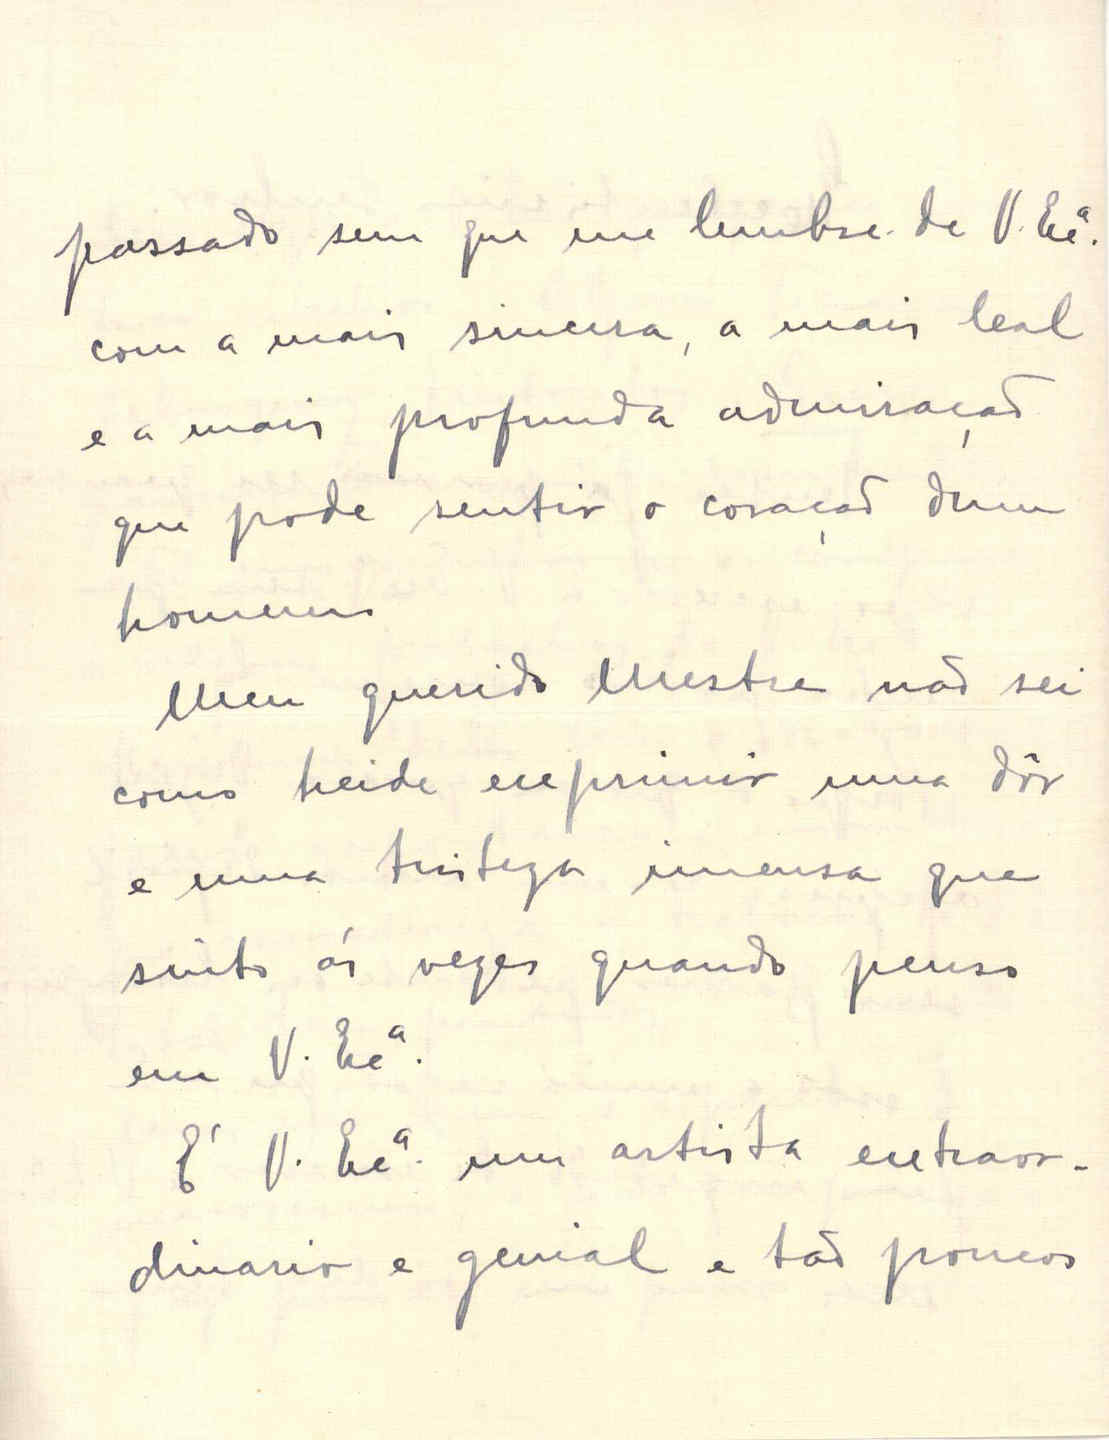 passado sem que me lembre de V. Exª.
com a mais sincera, a mais leal
e a mais profunda admiração
que pode sentir o coração dum
homem.
Meu querido Mestre não sei
como heide exprimir uma dôr
e uma tristeza imensa que
sinto ás vezes quando penso
em V. Exª.
É V. Exª. um artista extraor-
dinario e genial e tão poucos